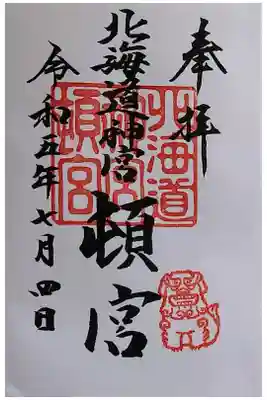 奉拝
北海道神宮
頓宮
令和五年七月四日
北海道神宮頓宮